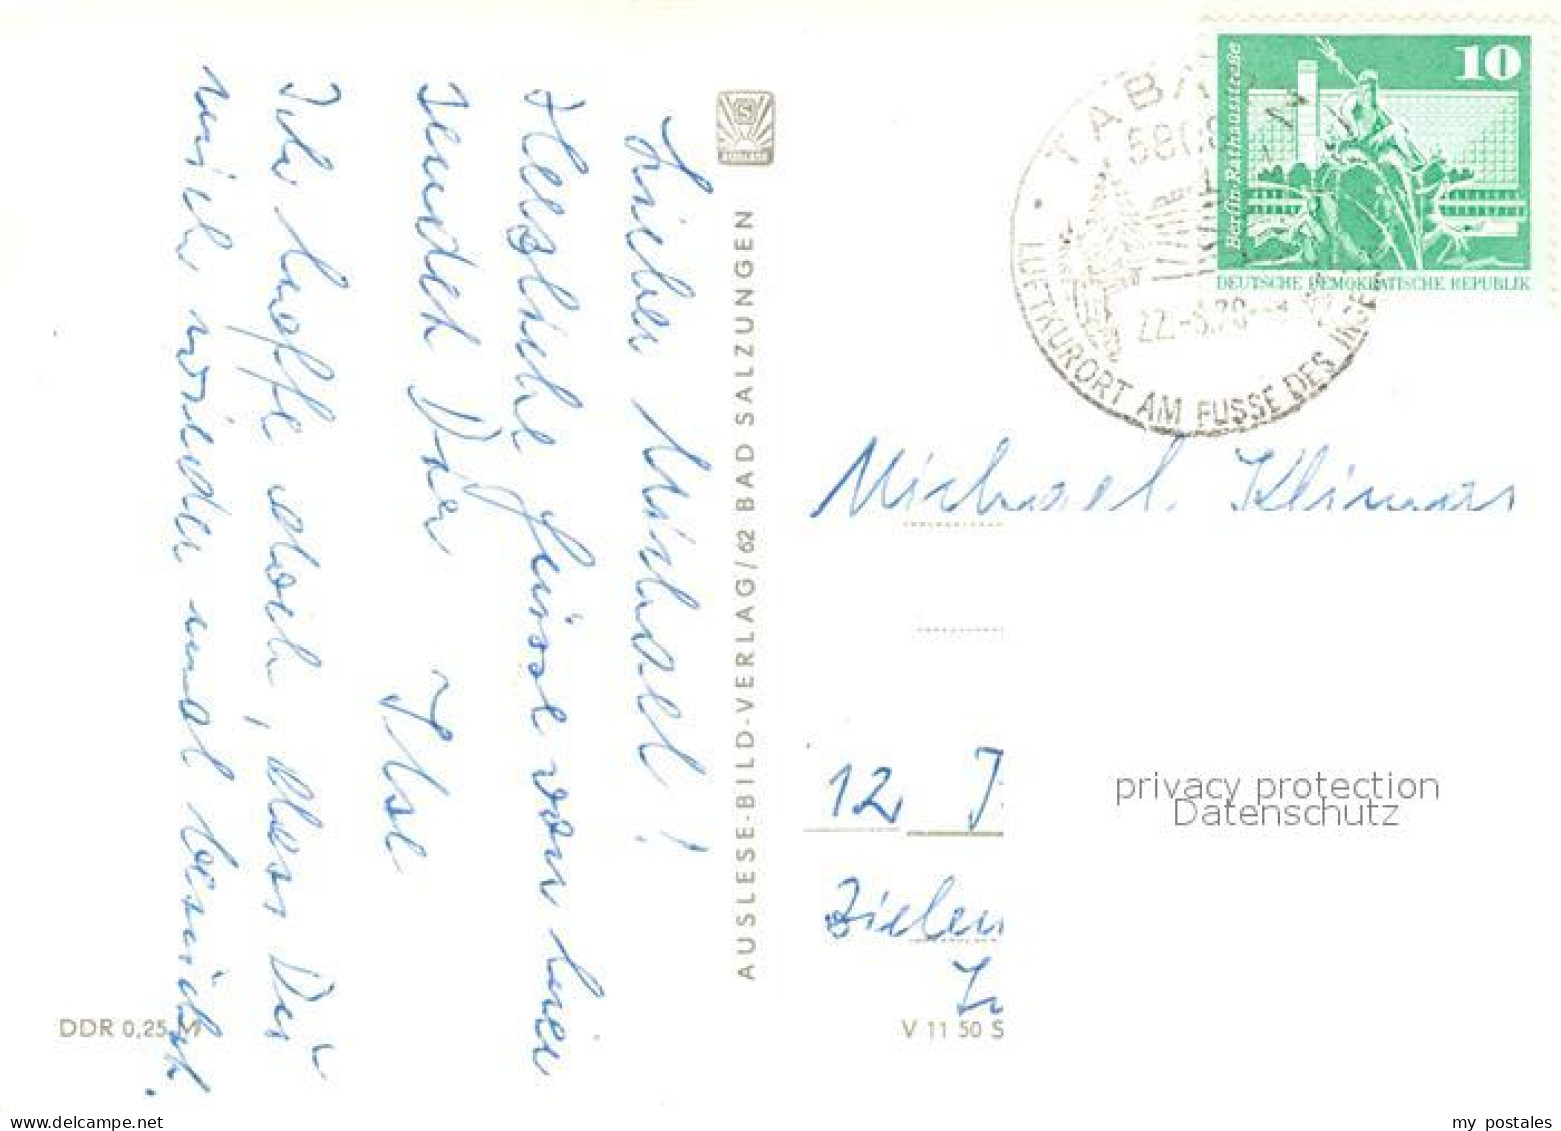 Lieber Michael!
Herzliche Grüsse von hier
sendet Dir
Ilse
Ich hoffe doch, dass Du
mich wieder mal besuchst.
AUSLESE-BILD-VERLAG/62 BAD SALZUNGEN
DDR 0,25 M
V 11 50 S
10
Berlin, Rathausstraße
DEUTSCHE DEMOKRATISCHE REPUBLIK
TABA
LUFTKURORT AM FUSSE DES INSE
Michael
12
Zielen
privacy protection
Datenschutz
my postales